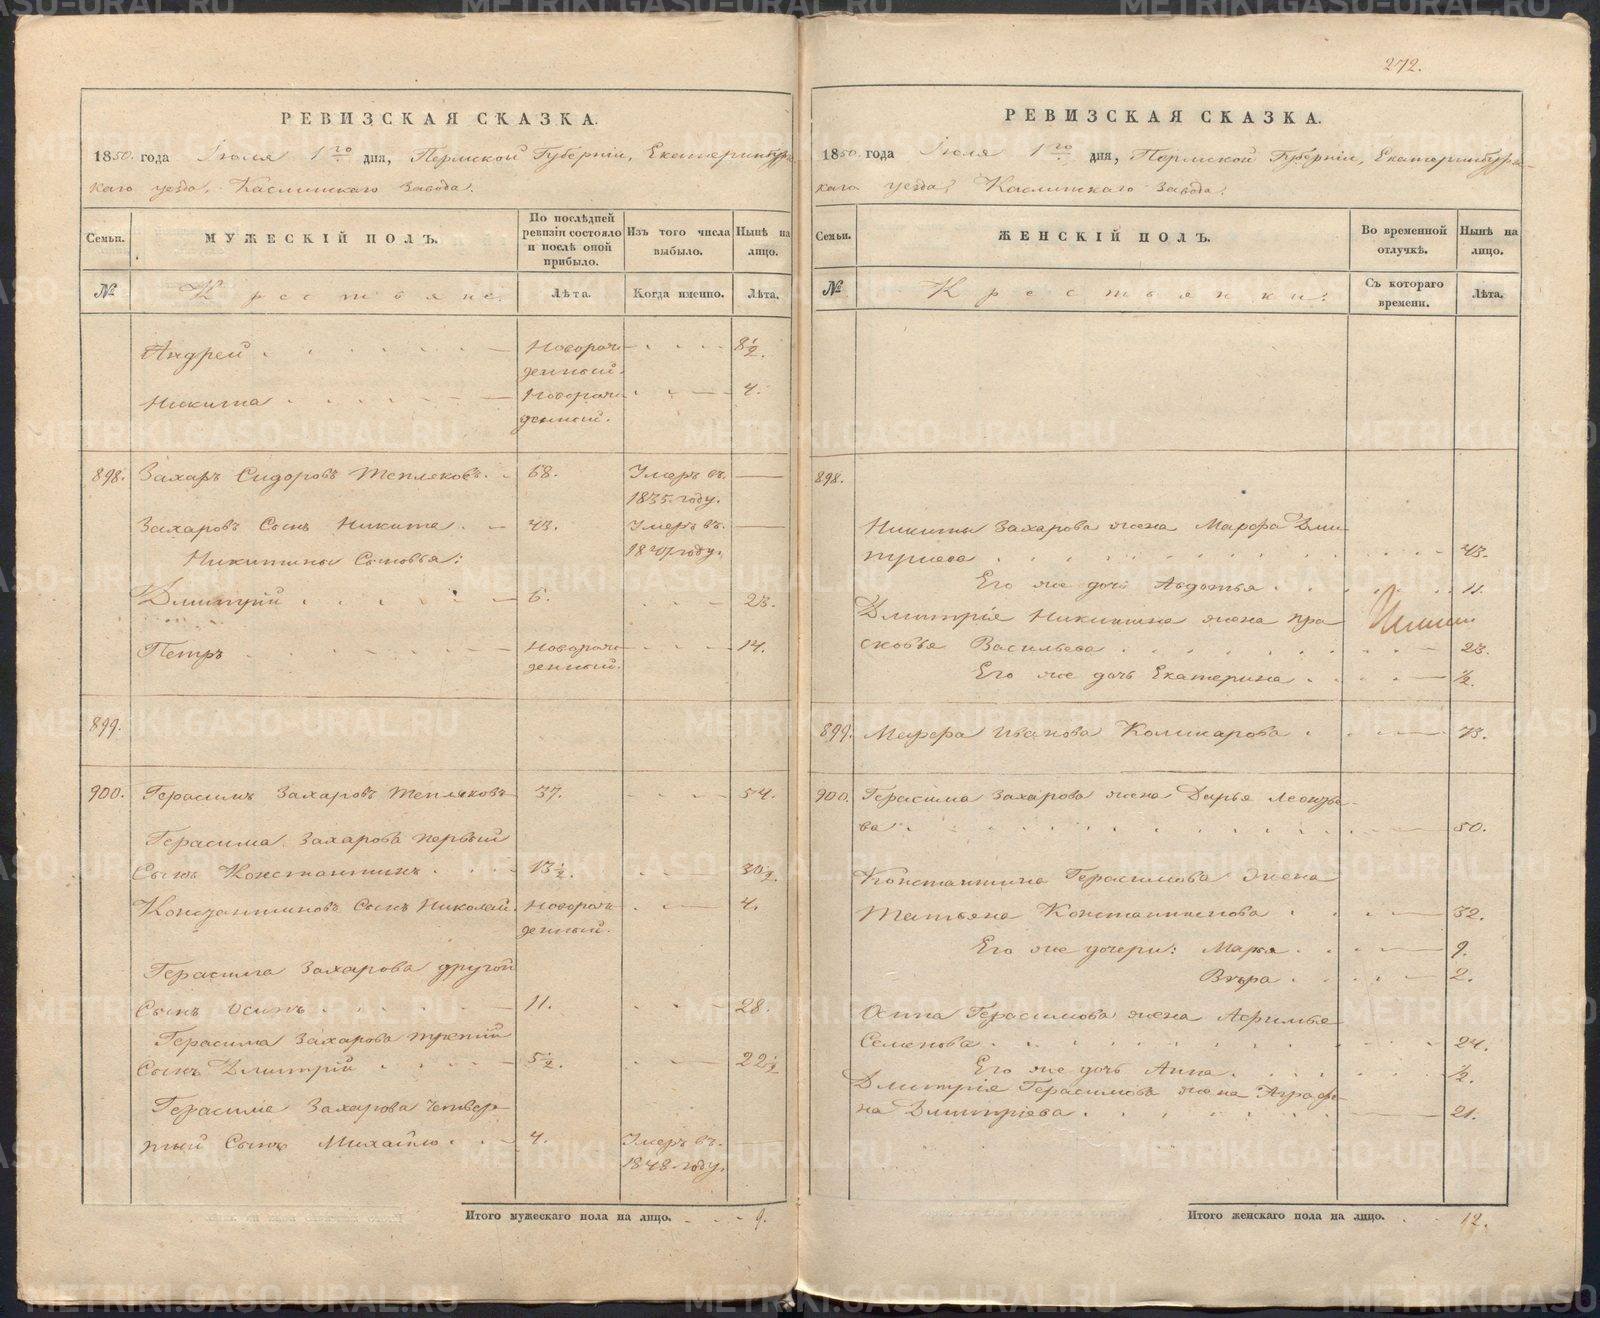 272.
РЕВИЗСКАЯ СКАЗКА.
1850. года Іюля 1го дня, Пермской Губерніи, Екатеринбург-
скаго уезда, Каслинскаго завода.
Семьи.
МУЖЕСКІЙ ПОЛЪ.
По послѣдней ревизіи состояло и послѣ оной прибыло.
Изъ того числа выбыло.
Нынѣ на лицо.
№
Крестьяне.
Лѣта.
Когда именно.
Лѣта.
Андрей Новорож- 8½.
денный.
Никита Новорож- 4.
денный.
898. Захаръ Сидоровъ Тепляковъ 68. Умеръ въ
1835 году.
Захаровъ Сынъ Никита 43. Умеръ въ
Никитины Сыновья: году.
Дмитрій 6. 23.
Петръ Новорож- 14.
денный.
899.
900. Герасимъ Захаровъ Тепляковъ 37. 54.
Герасима Захарова первый
Сынъ Константинъ 13½. 30½.
Константиновъ Сынъ Николай Новорож- 4.
денный.
Герасима Захарова другой
Сынъ Осипъ 11. 28.
Герасима Захарова третій
Сынъ Дмитрій 5½. 22½
Герасима Захарова четвер-
тый Сынъ Михайло 4. Умеръ въ
1848 году.
Итого мужескаго пола на лицо. 9.
РЕВИЗСКАЯ СКАЗКА.
1850. года Іюля 1го дня, Пермской Губерніи, Екатеринбургс-
каго уезда, Каслинскаго завода.
Семьи.
ЖЕНСКІЙ ПОЛЪ.
Во временной отлучкѣ.
Нынѣ на лицо.
№
Крестьянки:
Съ котораго времени.
Лѣта.
898.
Никиты Захарова жена Марфа Дми-
тріева 43.
Его же дочь Авдотья 11.
Дмитрія Никитина жена Пра-
сковья Васильева 23.
Его же дочь Екатерина ½.
899. Марфа Иванова Комиссарова 73.
900. Герасима Захарова жена Дарья Леонтье-
ва 50.
Константина Герасимова жена
Татьяна Константинова 32.
Его же дочери: Марья 9.
Вѣра 2.
Осипа Герасимова жена Афимья
Семенова 24.
Его же дочь Анна ½.
Дмитрія Герасимова жена Аграфе-
на Дмитріева 21.
Итого женскаго пола на лицо. 12.
METRIKI.GASO-URAL.RU